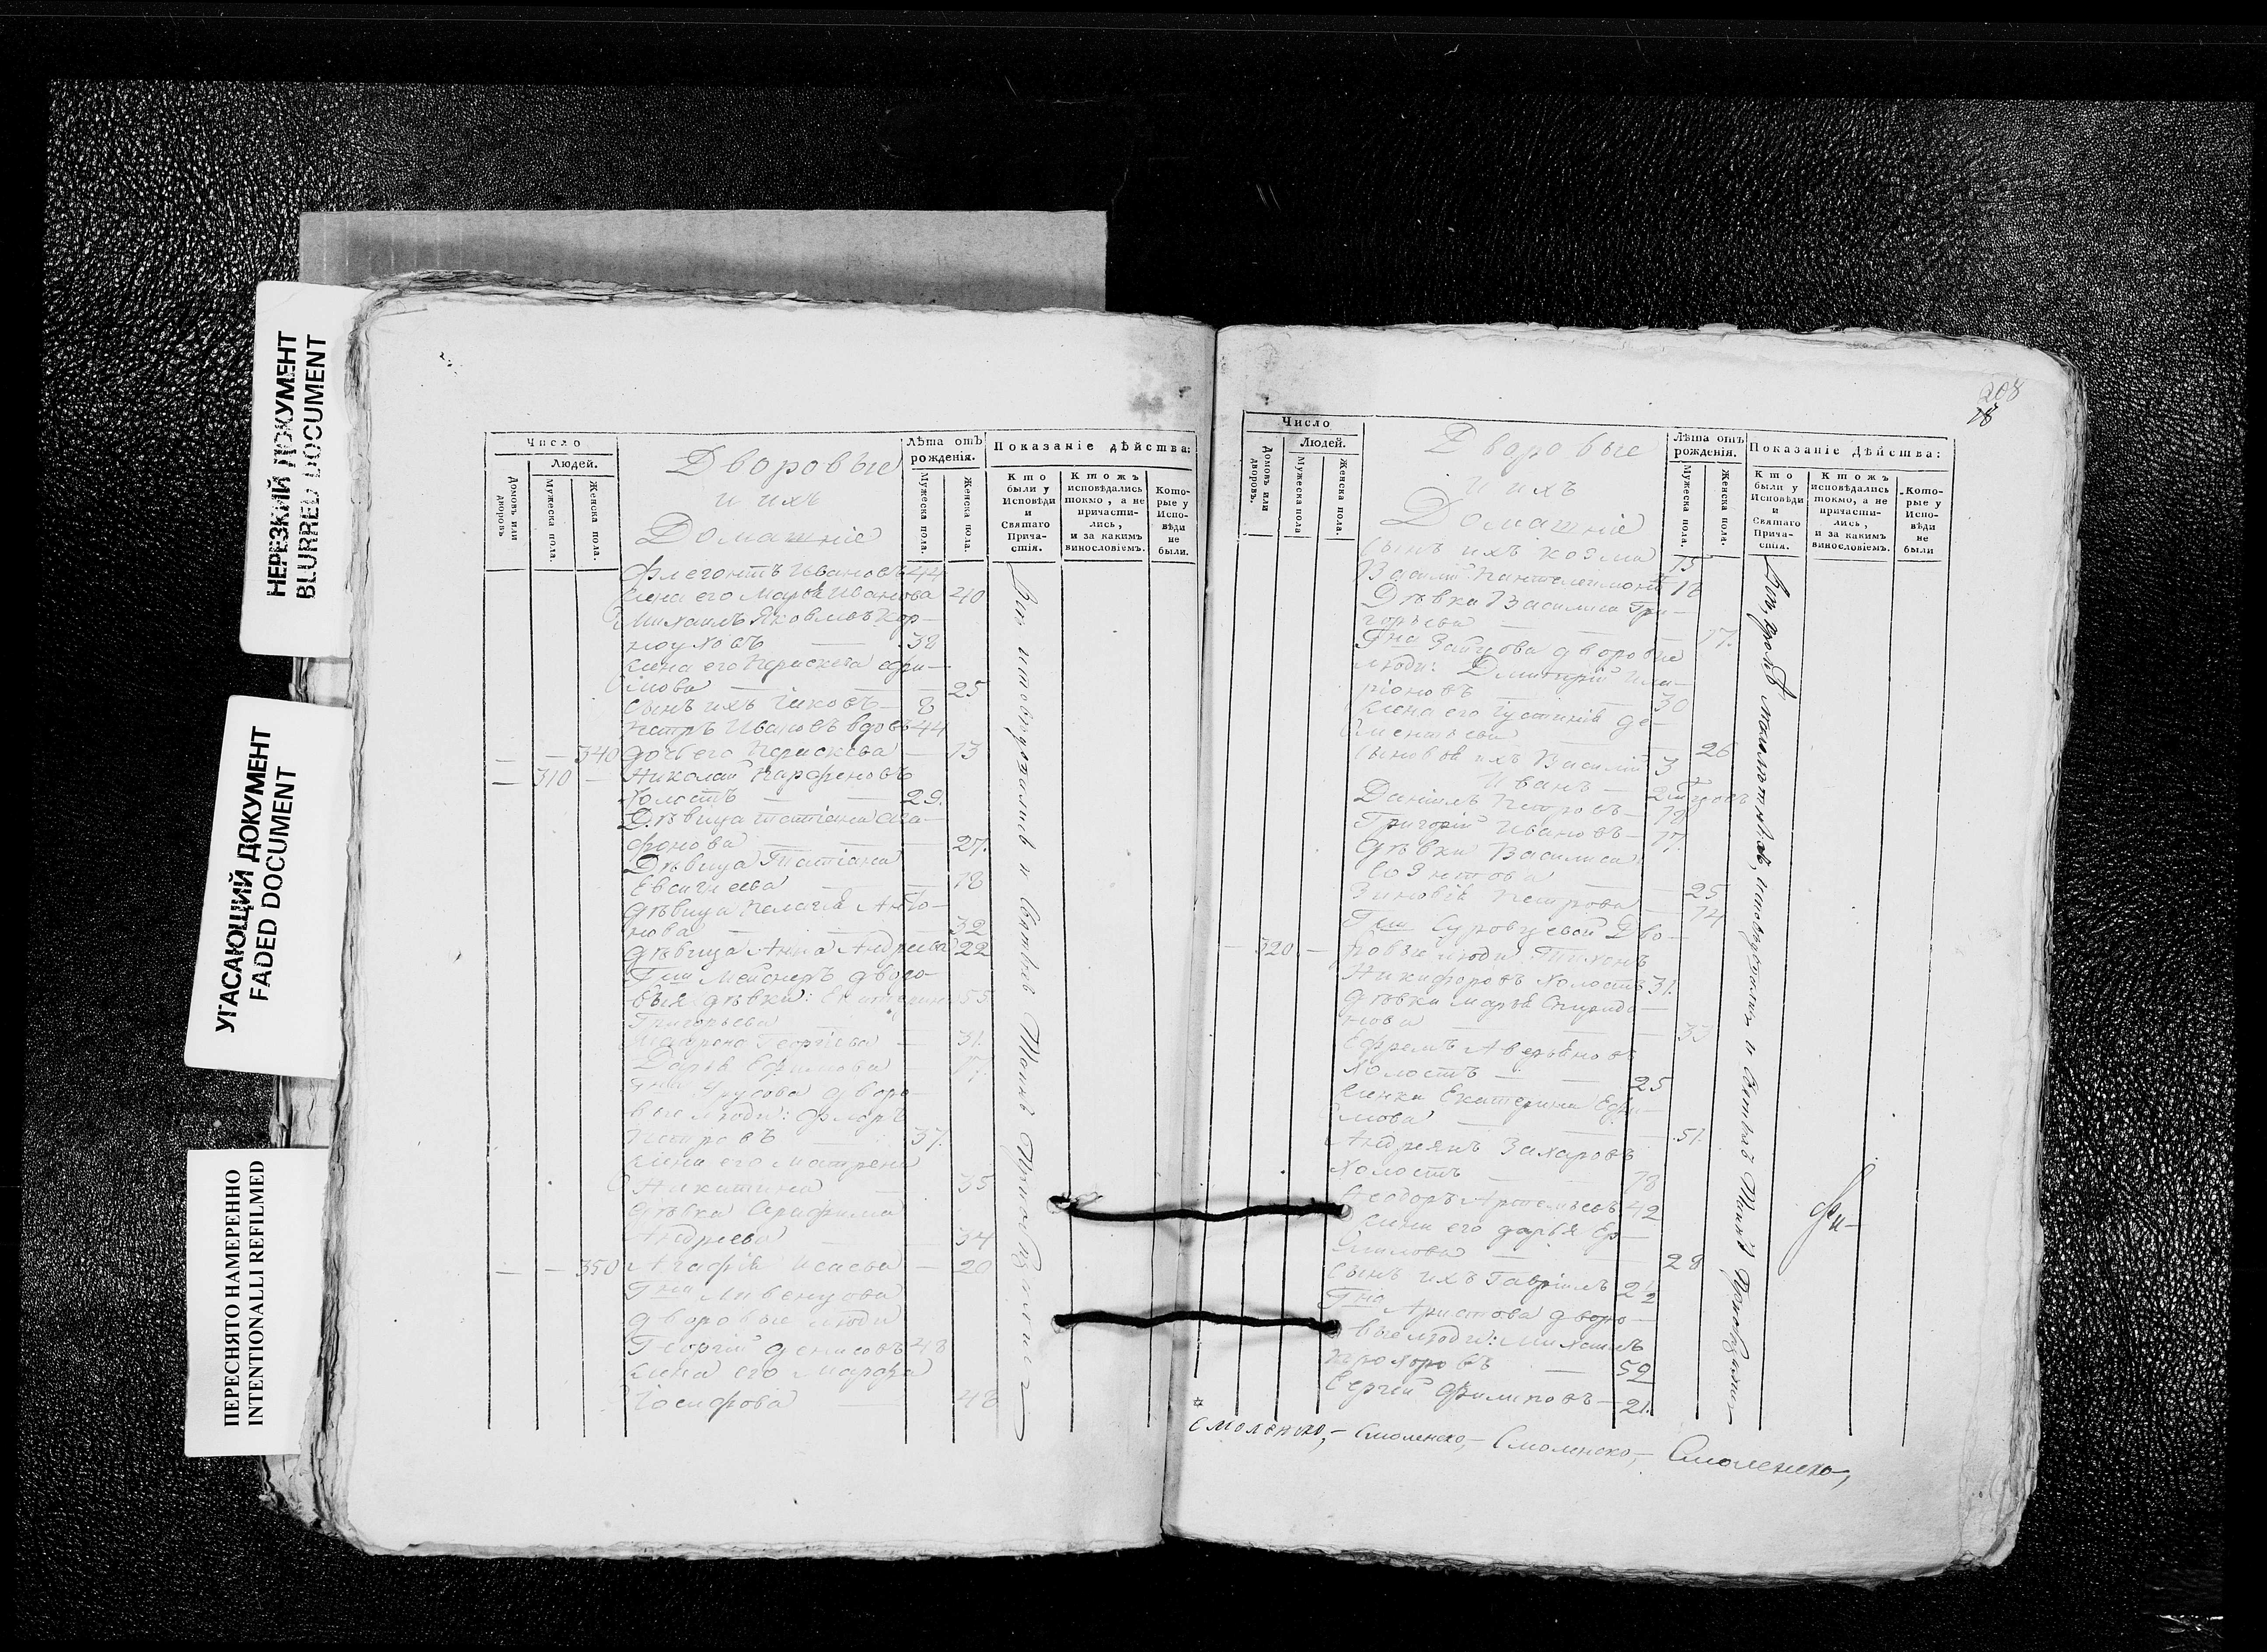 НЕРЕЗКИЙ ДОКУМЕНТ
BLURRED DOCUMENT
УГАСАЮЩИЙ ДОКУМЕНТ
FADED DOCUMENT
ПЕРЕСНЯТО НАМЕРЕННО
INTENTIONALLI REFILMED
Число
Людей.
Домовъ или дворовъ
Мужеска пола.
Женска пола.
Дворовые
и ихъ
Домашніе
Лѣта отъ рожденія.
Мужеска пола.
Женска пола.
Показаніе дѣйства:
Кто были у Исповѣди и Святаго Причастія.
Ктожъ исповѣдались токмо, а не причастились, и за какимъ винословіемъ.
Которые у Исповѣди не были.
Флегонтъ Ивановъ 44
жена его Марья Иванова 40
Михаилъ Яковлевъ Кор-
ноуховъ — 32
жена его Параскева Ефи-
мова — — 25
сынъ ихъ Іаковъ — 8
Петръ Ивановъ вдовъ 44
— — 340 дочь его Параскева — 13
— 310 — Николай Парфеновъ
холостъ — — 29.
Дѣвица Татіана Ага-
фонова — — 27.
Дѣвица Татіана
Евсигнеева — — 18
дѣвица Пелагія Анто-
нова — — 32
дѣвица Анна Андреева 22
Гжи Мейснеръ дворо-
выя дѣвки: Екатерина 55
Григорьева
Матрона Георгіева — 31.
Дарья Ефимова — 17.
Гна Трусова дворо-
вые люди: Флоръ
Петровъ — 37.
жена его Матрена
Никитина — 35
дѣвка Серафима
Андреева — 34
— — 350 Агафія Исаева — 20
Гна Ливенцова
дворовые люди
Георгій Денисовъ 48
жена его Марфа
Іосифова — 48
Всѣ исповѣдовались и Святыхъ Таинъ Пріобщились
208
18
Число
Людей.
Домовъ или дворовъ.
Мужеска пола
Женска пола.
Дворовые
и ихъ
Домашніе
Лѣта отъ рожденія.
Мужеска пола.
Женска пола.
Показаніе Дѣйства:
Кто были у Исповѣди и Святаго Причастія.
Ктожъ исповѣдались токмо, а не причастились, и за какимъ винословіемъ.
Которые у Исповѣди не были
сынъ ихъ Козма 15
Василій 18
Дѣвка Василиса Гри-
горьева — 17.
Гна Зайцова дворовые
люди: Дмитрій Ила-
ріоновъ — 30
жена его Іустинія Де-
ментьева — 26
сыновья ихъ Василій 3
Иванъ —
Даніилъ Петровъ — 18
Григорій Ивановъ — 17.
дѣвки Василиса
— 25
Зиновія Петрова — 14
Гжи Суровцевой Дво-
— 320 — ровые люди: Тихонъ
Никифоровъ холостъ 31.
дѣвка Марья Спиридо-
нова — 33
Ефремъ Аверьяновъ
холостъ — — 25
женка Екатерина Ефи-
мова — 51.
Андреянъ Захаровъ
холостъ — 18
Ѳеодоръ Артемьевъ 42
жена его Дарья Ер-
милова — 28
сынъ ихъ Гавріилъ 2½
Гна Аристова дворо-
вые люди: Михаилъ
Прохоровъ — 59
Сергій Филиповъ — 21.
Всѣ, кромѣ малолѣтнихъ, исповѣдовались и Святыхъ Таинъ Пріобщились
Смоленско,— Смоленско,— Смоленско,— Смоленско,